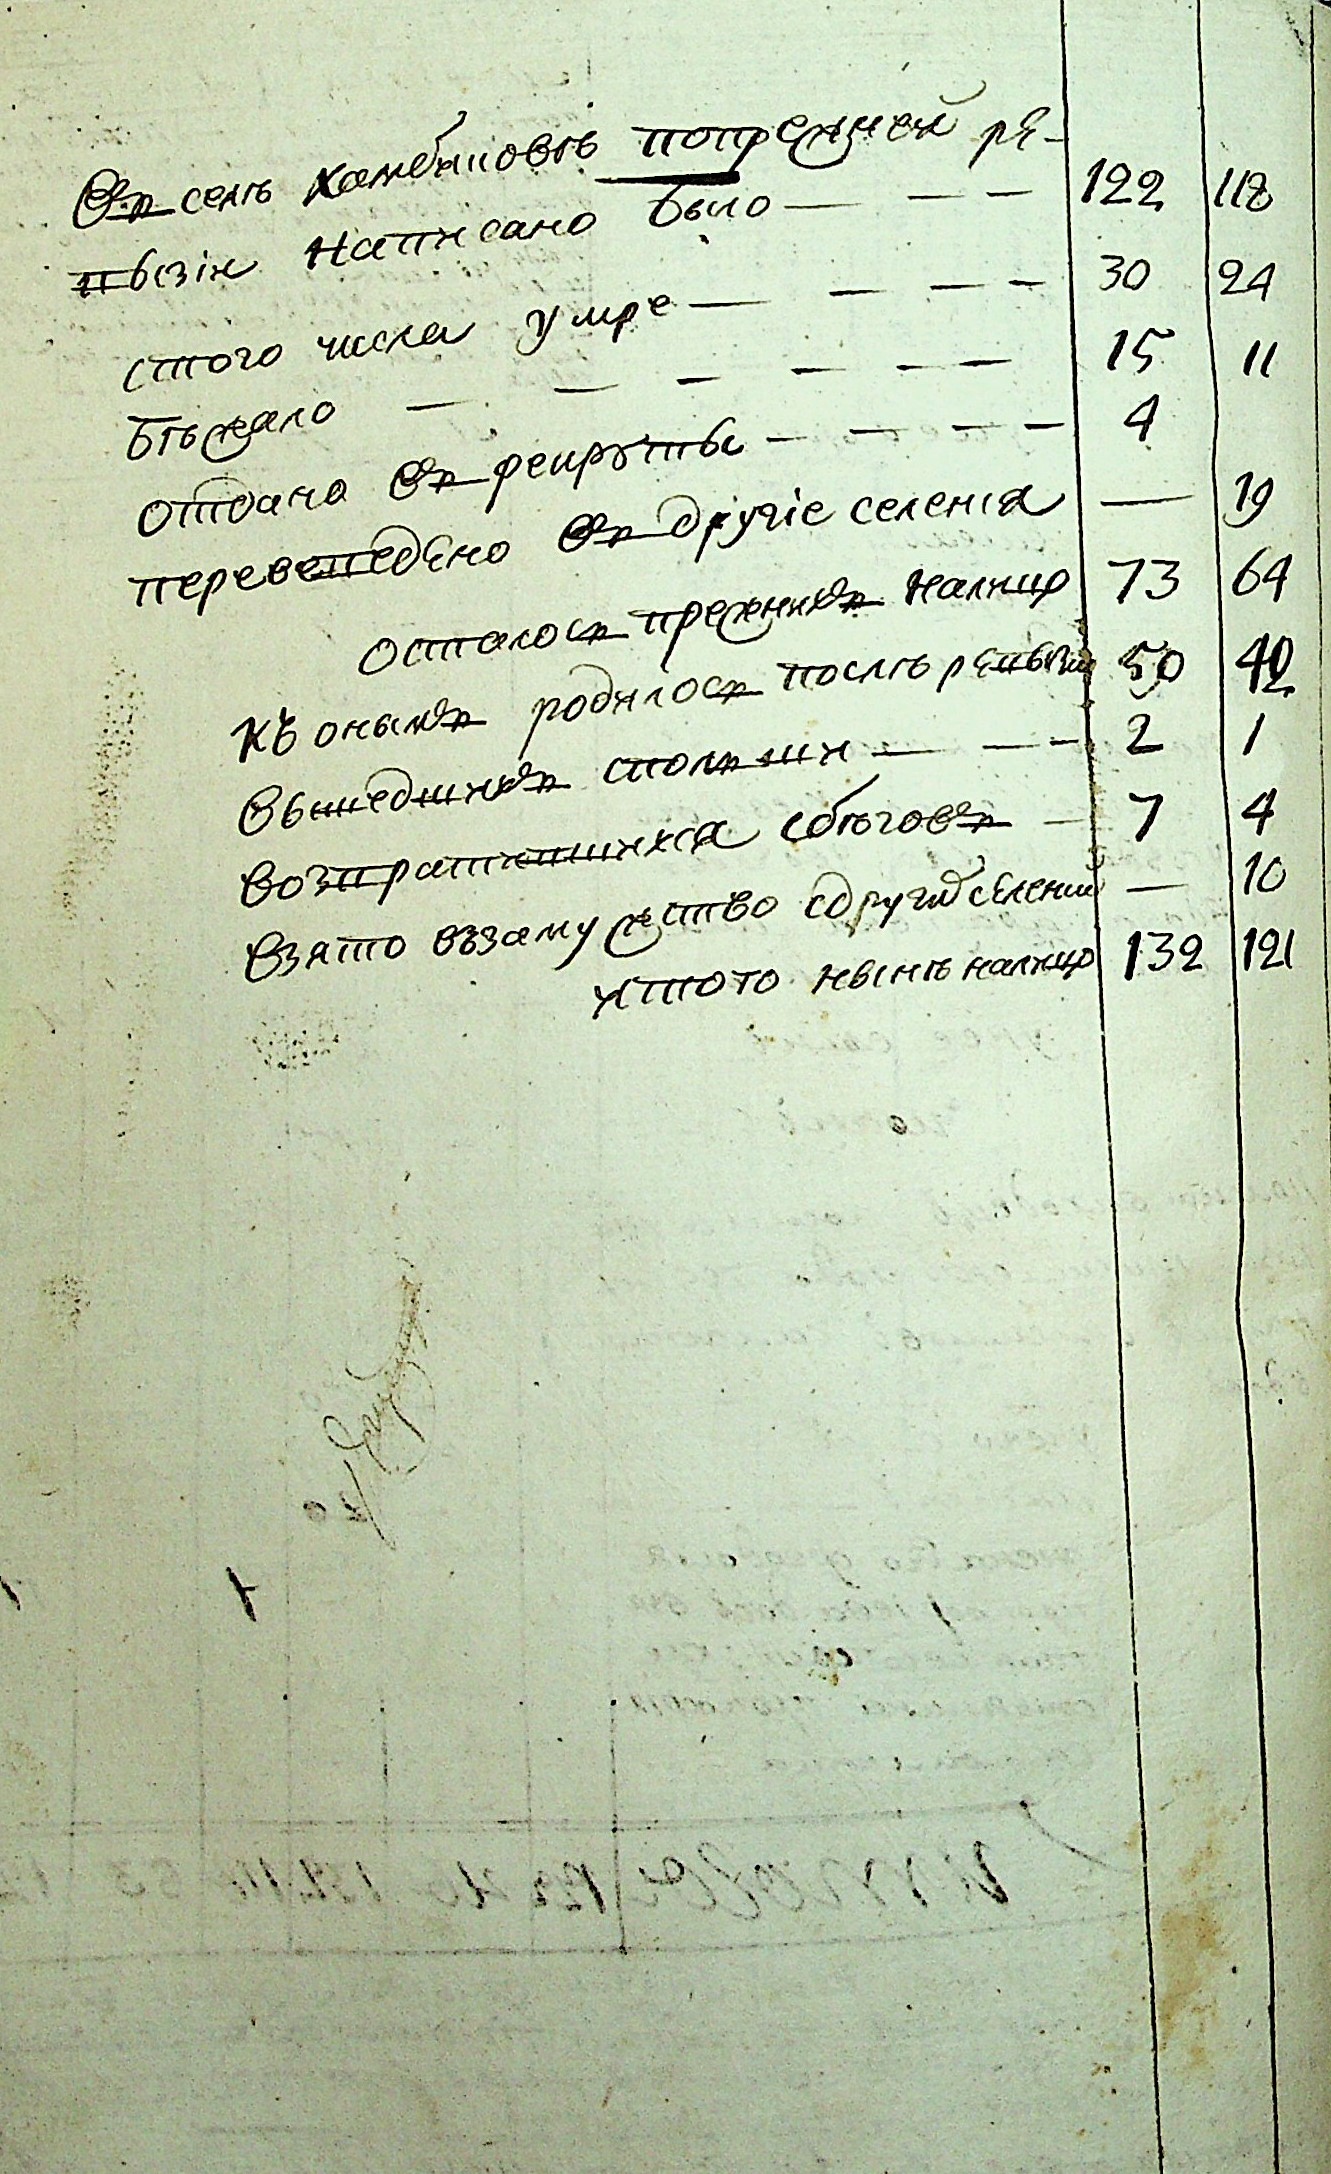 Въ селѣ Хамбиловѣ попрежней ре-
визіи написано было — — — 122 118
стого числа умре — — — — 30 24
бѣжало — — — — — — 15 11
отдано въ рекруты — — — — 4
переведено въ другіе селенія — 19
осталось прежнихъ налицо 73 64
къ онымъ родилось послѣ ревизіи 50 42
вышедшихъ — — — 2 1
возвратившихся сбѣговъ — 7 4
взято взамужство сдругихъ селеній — 10
итого нынѣ налицо 132 121